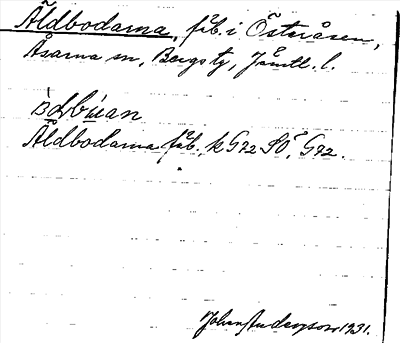 Äldbodarna, fäb. i Österåsen,
Åsarna sn, Bergs tg, Jämtl. l.
Äldbodarna fäb., k G92 SÖ, G92.
Johan Anderson 1931.